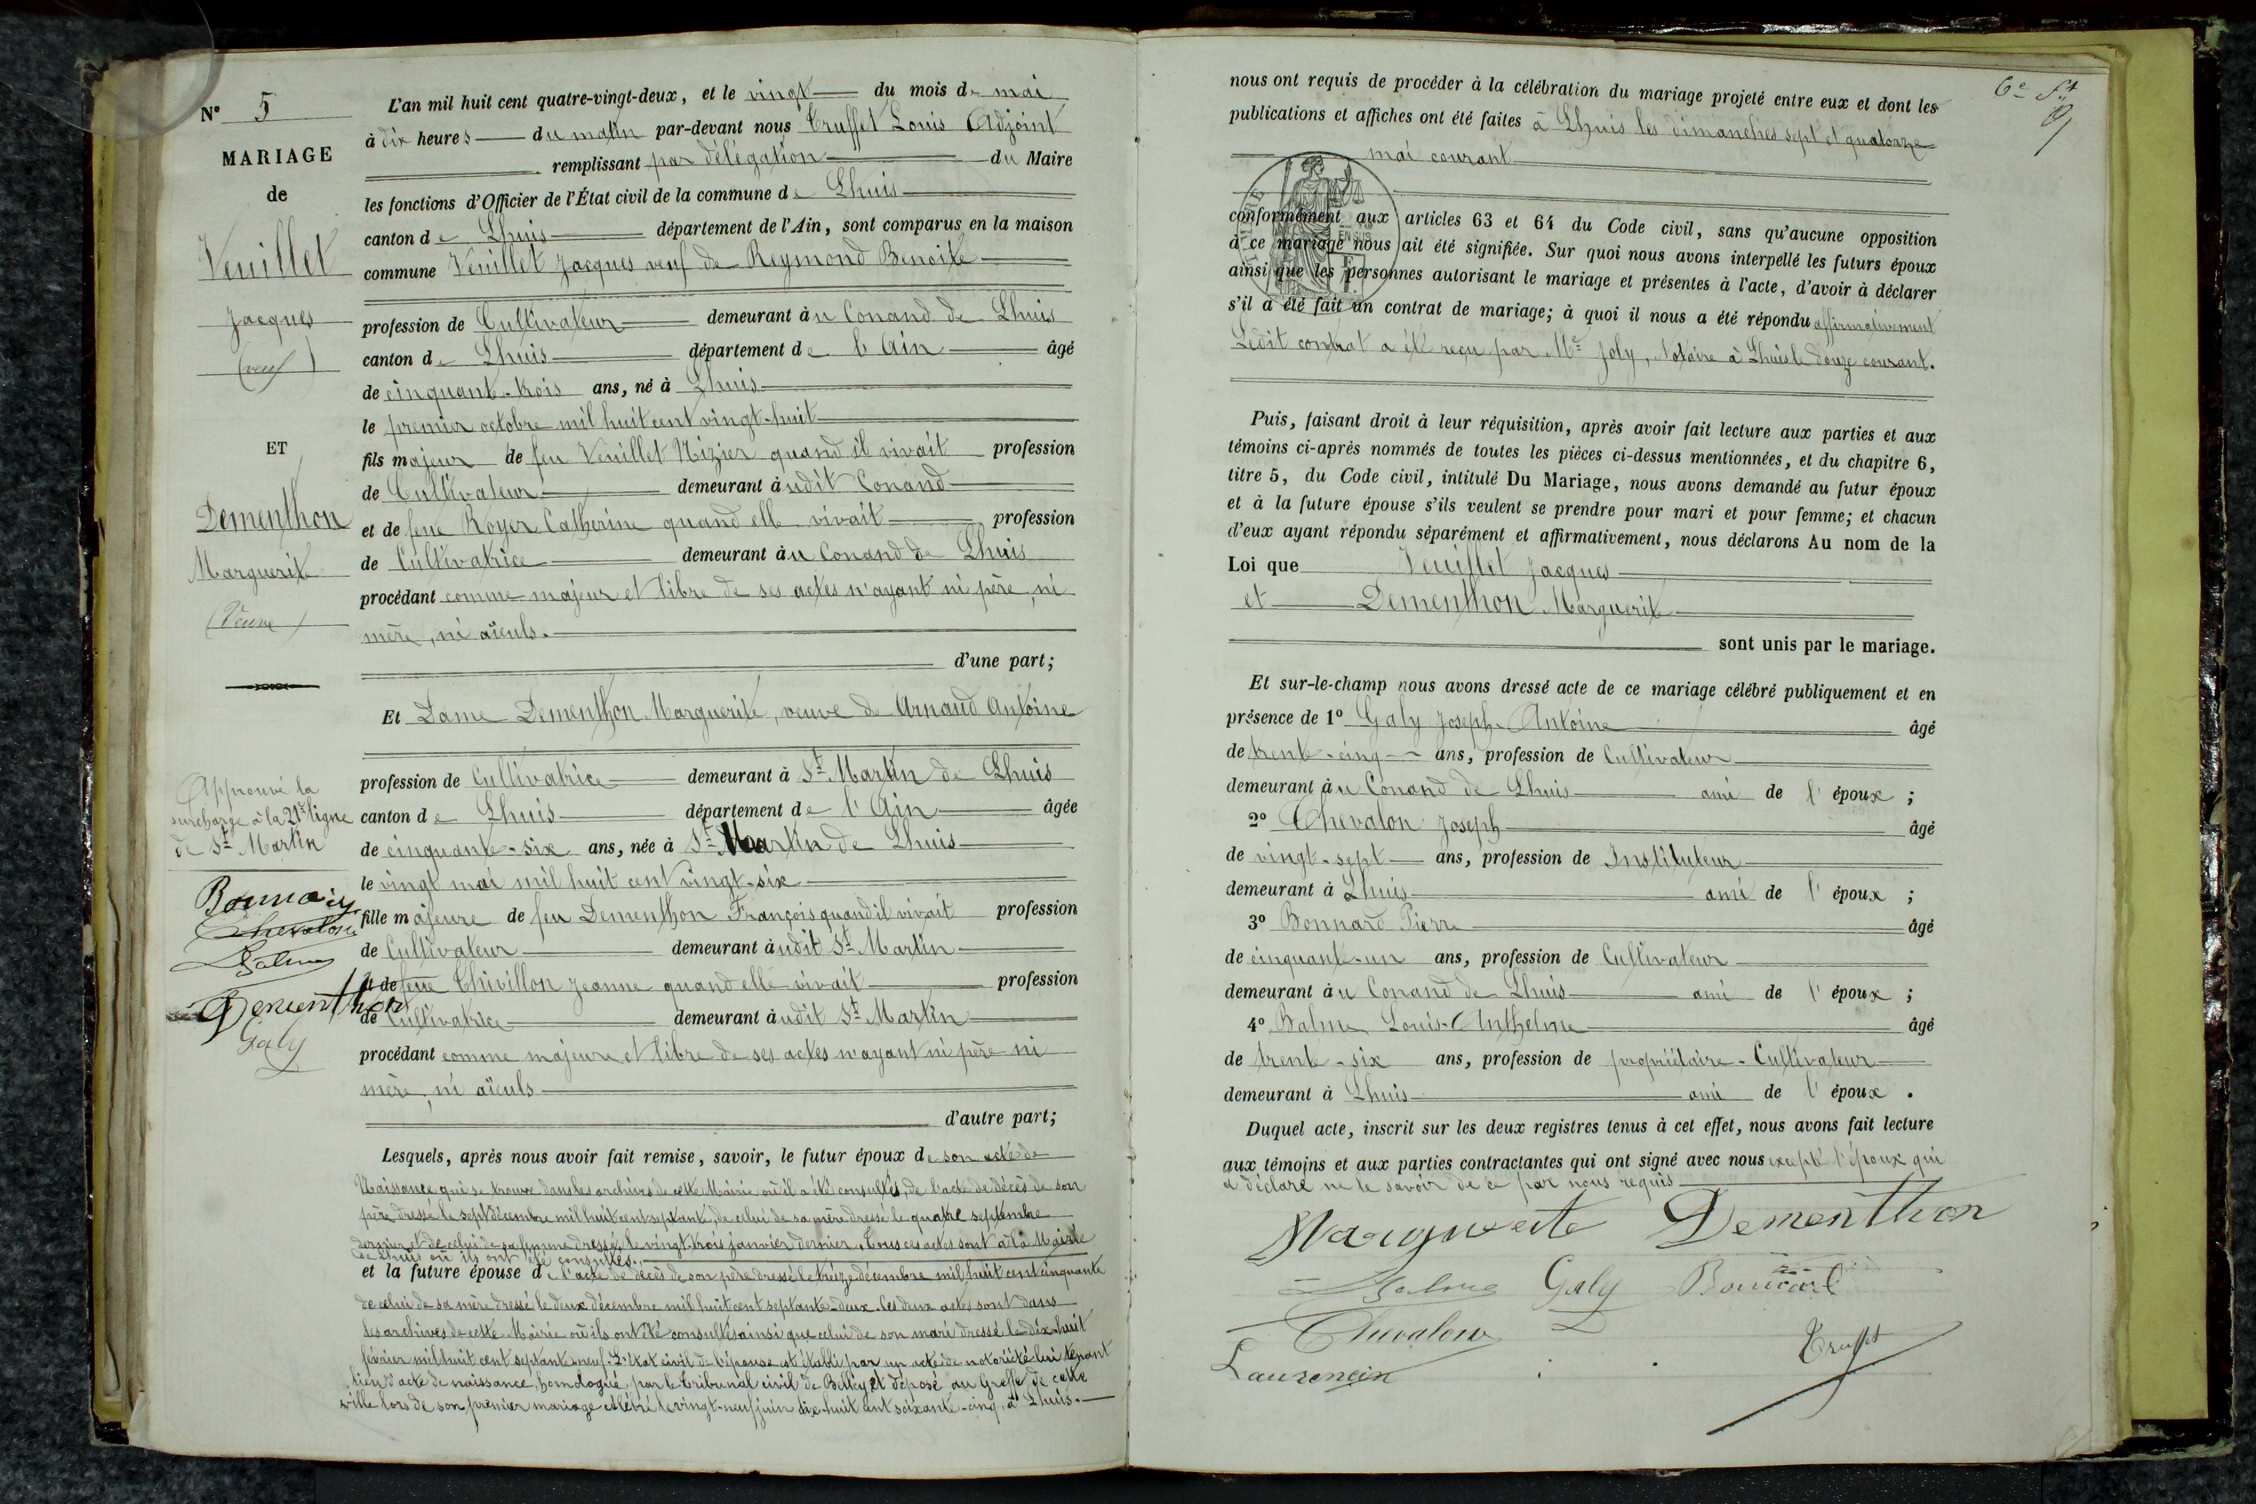 N° 5
MARIAGE
de
Veuillet
Jacques
(veuf)
ET
Dementhon
Marguerite
(Veuve)
Approuvé la
surcharge à la 21e ligne
de St Martin
Bonnard
Chevalon
Balme
Dementhon
Galy
L'an mil huit cent quatre-vingt-deux, et le vingt du mois de mai
à dix heures du matin par-devant nous Truffet Louis Adjoint
remplissant par délégation du Maire
les fonctions d'Officier de l'État civil de la commune de Lhuis
canton de Lhuis département de l'Ain, sont comparus en la maison
commune Veuillet Jacques veuf de Reymond Benoite
profession de Cultivateur demeurant à u Conand de Lhuis
canton de Lhuis département de l'Ain âgé
de cinquante-trois ans, né à Lhuis
le premier octobre mil huit cent vingt-huit
fils majeur de feu Veuillet Nizier quand il vivait profession
de Cultivateur demeurant à udit Conand
et de feue Royer Catherine quand elle vivait profession
de Cultivatrice demeurant à u Conand de Lhuis
procédant comme majeur et libre de ses actes n'ayant ni père, ni
mère, ni aïeuls.
d'une part;
Et Dame Dementhon Marguerite, veuve de Arnaud Antoine
profession de Cultivatrice demeurant à St Martin de Lhuis
canton de Lhuis département de l'Ain âgée
de cinquante-six ans, née à St Martin de Lhuis
le vingt mai mil huit cent vingt-six
fille majeure de feu Dementhon François quand il vivait profession
de Cultivateur demeurant à udit St Martin
et de feue Chivillon Jeanne quand elle vivait profession
de Cultivatrice demeurant à udit St Martin
procédant comme majeure et libre de ses actes n'ayant ni père ni
mère, ni aïeuls
d'autre part;
Lesquels, après nous avoir fait remise, savoir, le futur époux de son acte de
Naissance qui se trouve dans les archives de cette Mairie où il a été consultés, de l'acte de décès de son
père dressé le sept décembre mil huit cent septante, de celui de sa mère dressé le quatre septembre
dernier et de celui de sa femme dressé le vingt-trois janvier dernier. Tous ces actes sont à la Mairie
de Lhuis où ils ont été consultés.
et la future épouse de l'acte de décès de son père dressé le treize décembre mil huit cent cinquante
de celui de sa mère dressé le deux décembre mil huit cent septante-deux. Ces deux actes sont dans
les archives de cette Mairie où ils ont été consultés ainsi que celui de son mari dressé le dix-huit
février mil huit cent septante-neuf. L'état civil de l'épouse est établi par un acte de notoriété lui tenant
lieu d'acte de naissance, homologué par le Tribunal civil de Belley et déposé au Greffe de cette
ville lors de son premier mariage célébré le vingt-neuf juin dix-huit cent soixante-cinq, à Lhuis.
6e
nous ont requis de procéder à la célébration du mariage projeté entre eux et dont les
publications et affiches ont été faites à Lhuis les dimanches sept et quatorze
mai courant
conformément aux articles 63 et 64 du Code civil, sans qu'aucune opposition
à ce mariage nous ait été signifiée. Sur quoi nous avons interpellé les futurs époux
ainsi que les personnes autorisant le mariage et présentes à l'acte, d'avoir à déclarer
s'il a été fait un contrat de mariage; à quoi il nous a été répondu affirmativement
Ledit contrat a été reçu par Me Joly, Notaire à Lhuis le douze courant.
Puis, faisant droit à leur réquisition, après avoir fait lecture aux parties et aux
témoins ci-après nommés de toutes les pièces ci-dessus mentionnées, et du chapitre 6,
titre 5, du Code civil, intitulé Du Mariage, nous avons demandé au futur époux
et à la future épouse s'ils veulent se prendre pour mari et pour femme; et chacun
d'eux ayant répondu séparément et affirmativement, nous déclarons Au nom de la
Loi que Veuillet Jacques
et Dementhon Marguerite
sont unis par le mariage.
Et sur-le-champ nous avons dressé acte de ce mariage célébré publiquement et en
présence de 1° Galy Joseph-Antoine âgé
de trente-cinq ans, profession de Cultivateur
demeurant à u Conand de Lhuis ami de l'époux ;
2° Chevalon Joseph âgé
de vingt-sept ans, profession de Instituteur
demeurant à Lhuis ami de l'époux ;
3° Bonnard Pierre âgé
de cinquante-un ans, profession de Cultivateur
demeurant à u Conand de Lhuis ami de l'époux ;
4° Balme Louis-Anthelme âgé
de trente-six ans, profession de propriétaire-Cultivateur
demeurant à Lhuis ami de l'époux .
Duquel acte, inscrit sur les deux registres tenus à cet effet, nous avons fait lecture
aux témoins et aux parties contractantes qui ont signé avec nous excepté l'époux qui
a déclaré ne le savoir de ce par nous requis
Marguerite Dementhon
Balme Galy Bonnard
Chevalon
Truffet
Laurencin